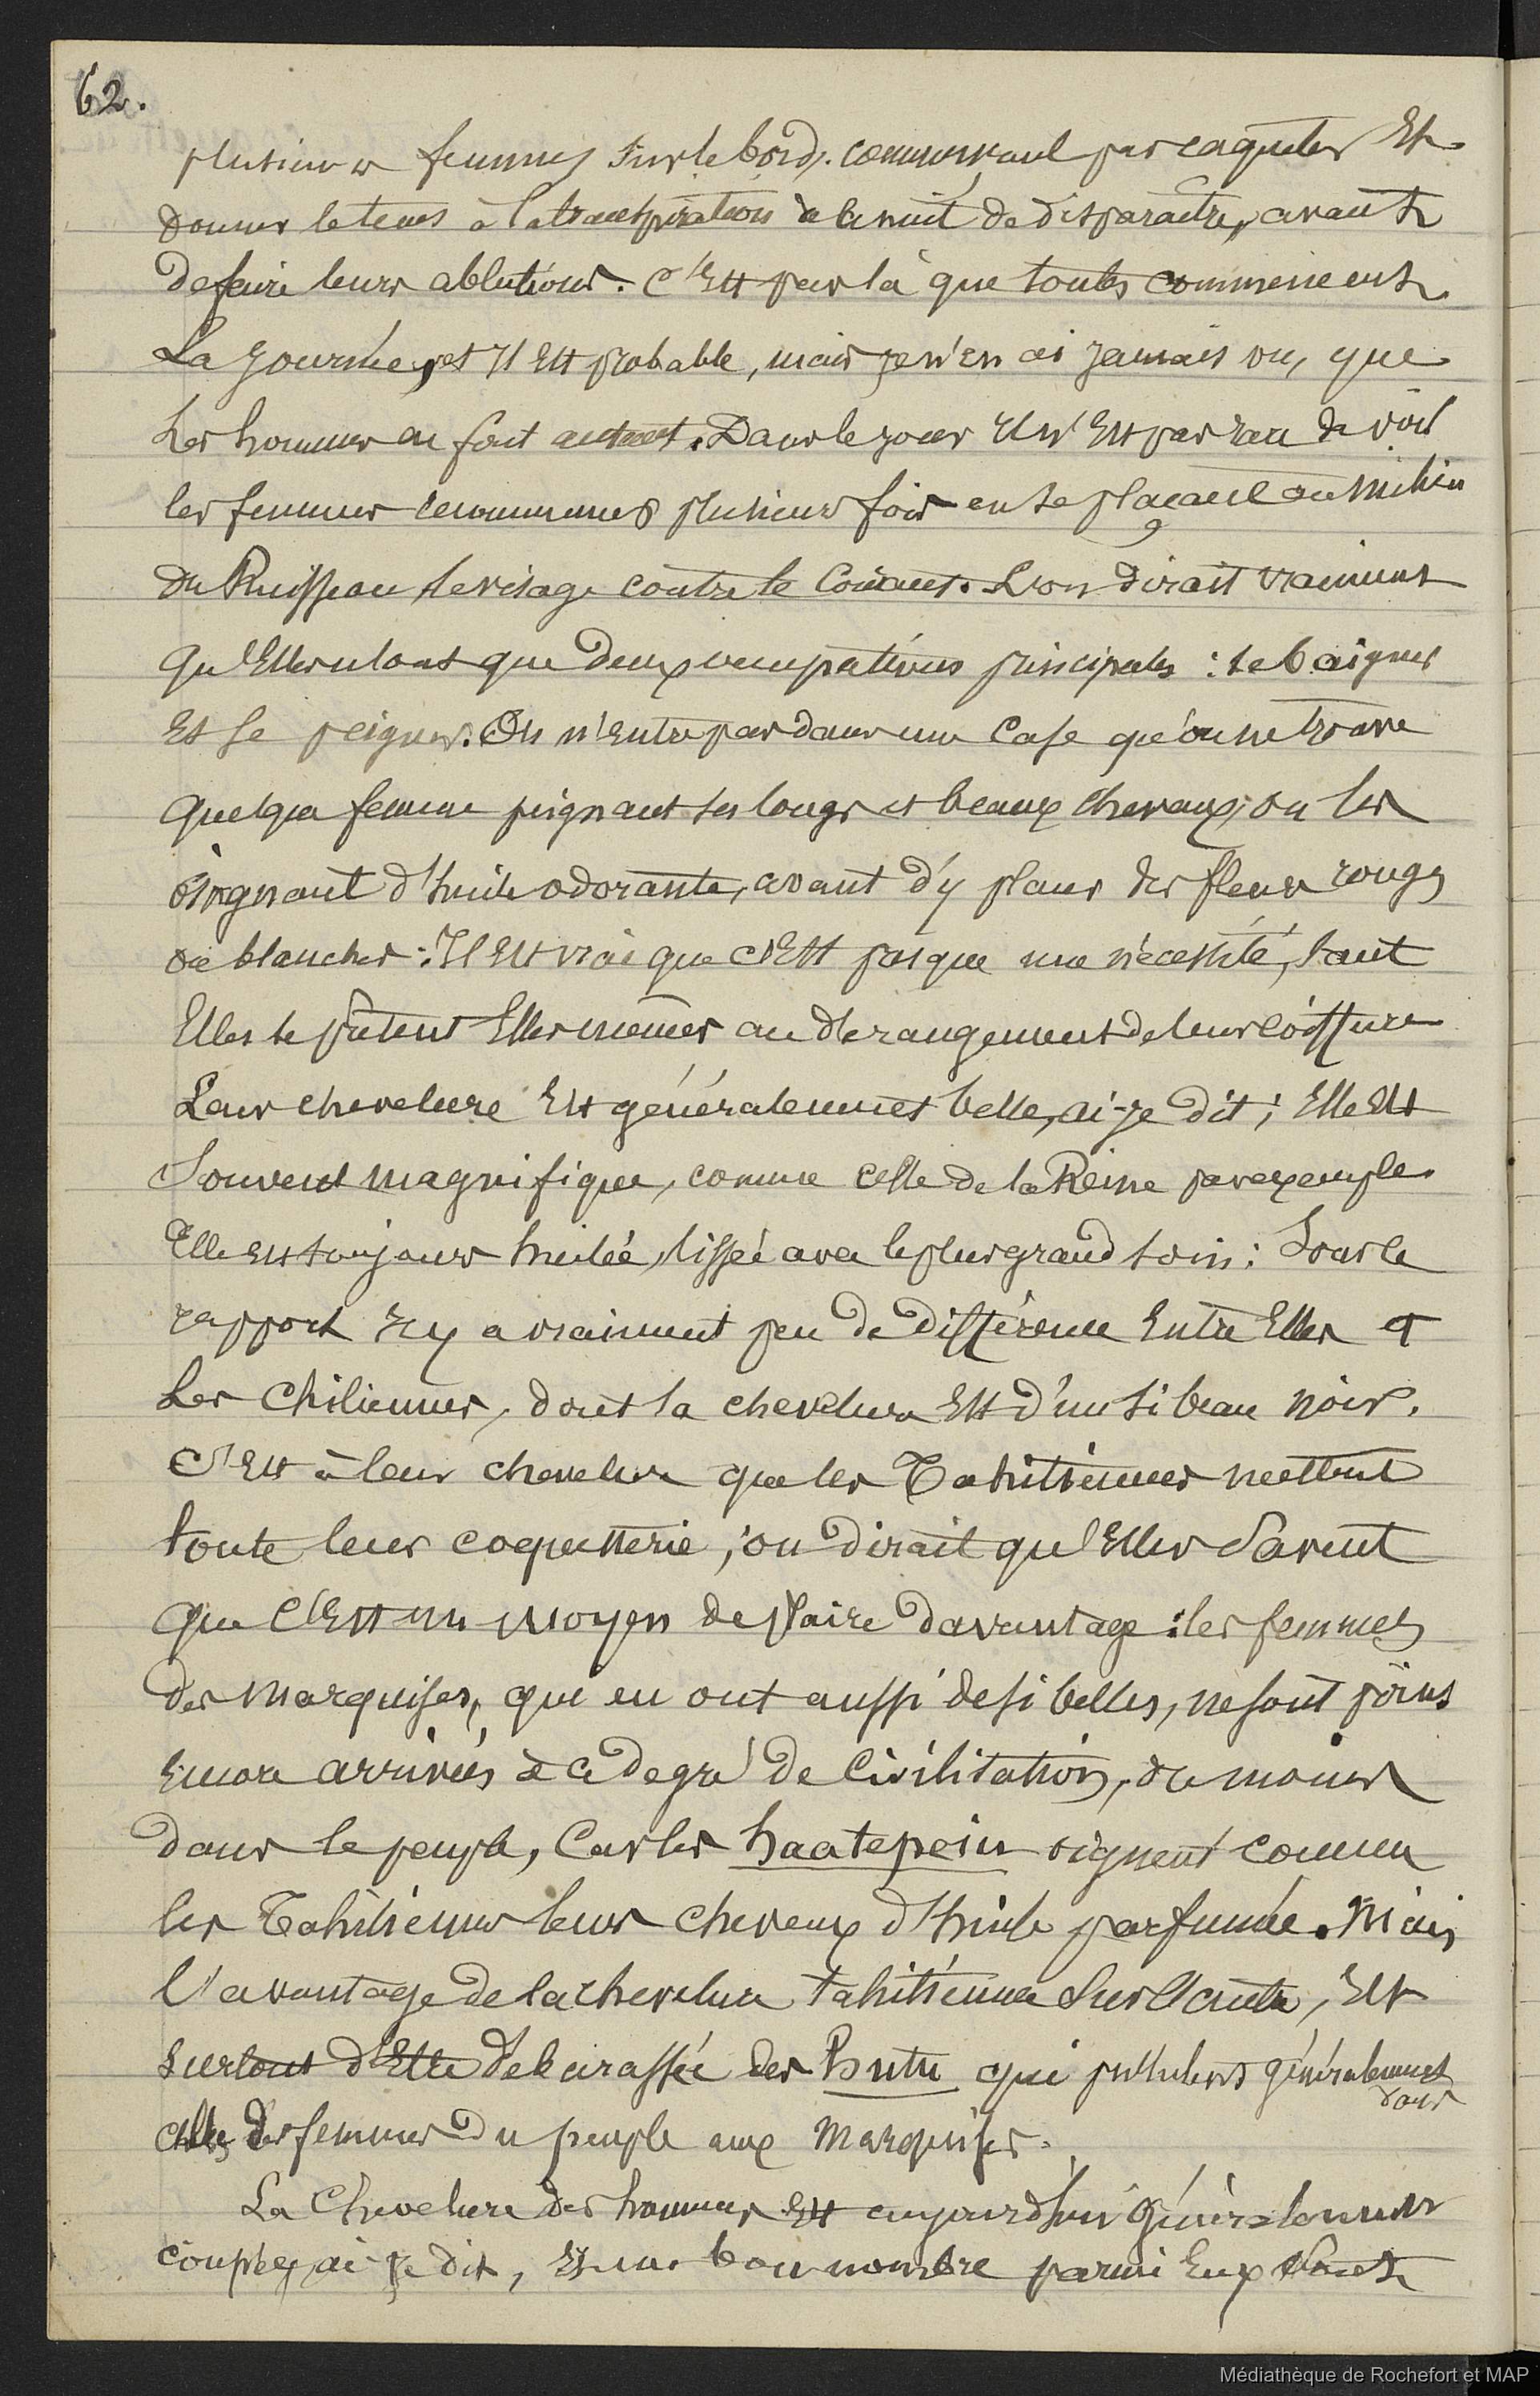 62.
plusieurs femmes sur le bord, commençant par caqueter Et
donner le tems à la transpiration de la nuit de disparaître, avant
de faire leurs ablutions. C'Est par là que toutes commencent
La journée, et Il Est probable, mais je n'en ai jamais vu, que
Les hommes en font autant. Dans le jour Il n'Est pas rare de voir
les femmes recommencer plusieurs fois en se plaçant au milieu
du Ruisseau le visage contre le Courant. L'on dirait vraiment
qu'Elles n'ont que deux occupations principales : se baigner
Et se peigner. On n'Entre pas dans une Case qu'on ne trouve
quelque femme peignant ses longs et beaux cheveux, ou les
oignant d'huile odorante, avant d'y placer des fleurs rouges
ou blanches : Il Est vrai que c'Est presque une nécessité, tant
Elles se prêtent Elles mêmes au dérangement de leur coiffure
Leur chevelure Est généralement belle, ai-je dit ; Elle Est
Souvent magnifique, comme celle de la Reine par exemple.
Elle Est toujours huilée, lissée avec le plus grand soin : Sous ce
rapport Il y a vraiment peu de différence Entre Elles et
Les Chiliennes, dont la chevelure Est d'un si beau noir.
C'Est à leur chevelure que les Tahitiennes mettent
toute leur coquetterie ; on dirait qu'Elles Savent
que C'Est un moyen de plaire davantage : les femmes
des Marquises, qui en ont aussi de si belles, ne sont point
Encore arrivées à ce degré de Civilisation, du moins
dans le peuple, Car les haatepeiu oignent comme
les Tahitiennes leurs cheveux d'huile parfumée. Mais
l'avantage de la chevelure tahitienne sur l'autre, Est
surtout d'Etre débarassée des Butu qui pullulent généralement
dans
celles des femmes du peuple aux Marquises.
La Chevelure des hommes Est aujourd'hui généralement
coupée, ai je dit, Et un bon nombre parmi Eux